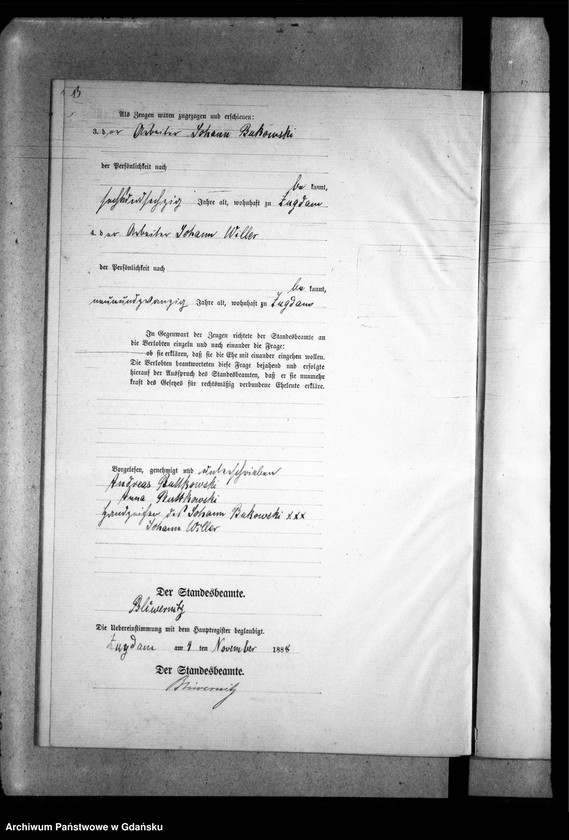 13
Als Zeugen waren zugezogen und erschienen:
3. der Arbeiter Johann Bukowski
der Persönlichkeit nach
be kannt,
sechsundsechzig Jahre alt, wohnhaft zu Zugdam
4. der Arbeiter Johann Willer
der Persönlichkeit nach
be kannt,
neunundzwanzig Jahre alt, wohnhaft zu Zugdam
In Gegenwart der Zeugen richtete der Standesbeamte an
die Verlobten einzeln und nach einander die Frage:
ob sie erklären, daß sie die Ehe mit einander eingehen wollen.
Die Verlobten beantworteten diese Frage bejahend und erfolgte
hierauf der Ausspruch des Standesbeamten, daß er sie nunmehr
kraft des Gesetzes für rechtsmäßig verbundene Eheleute erkläre.
Vorgelesen, genehmigt und unterschrieben
Andreas Buttkowski
Anna Buttkowski
Handzeichen des Johann Bukowski xxx
Johann Willer
Der Standesbeamte.
Die Uebereinstimmung mit dem Hauptregister beglaubigt.
Zugdam am 9 ten November 1888
Der Standesbeamte.
Archiwum Państwowe w Gdańsku